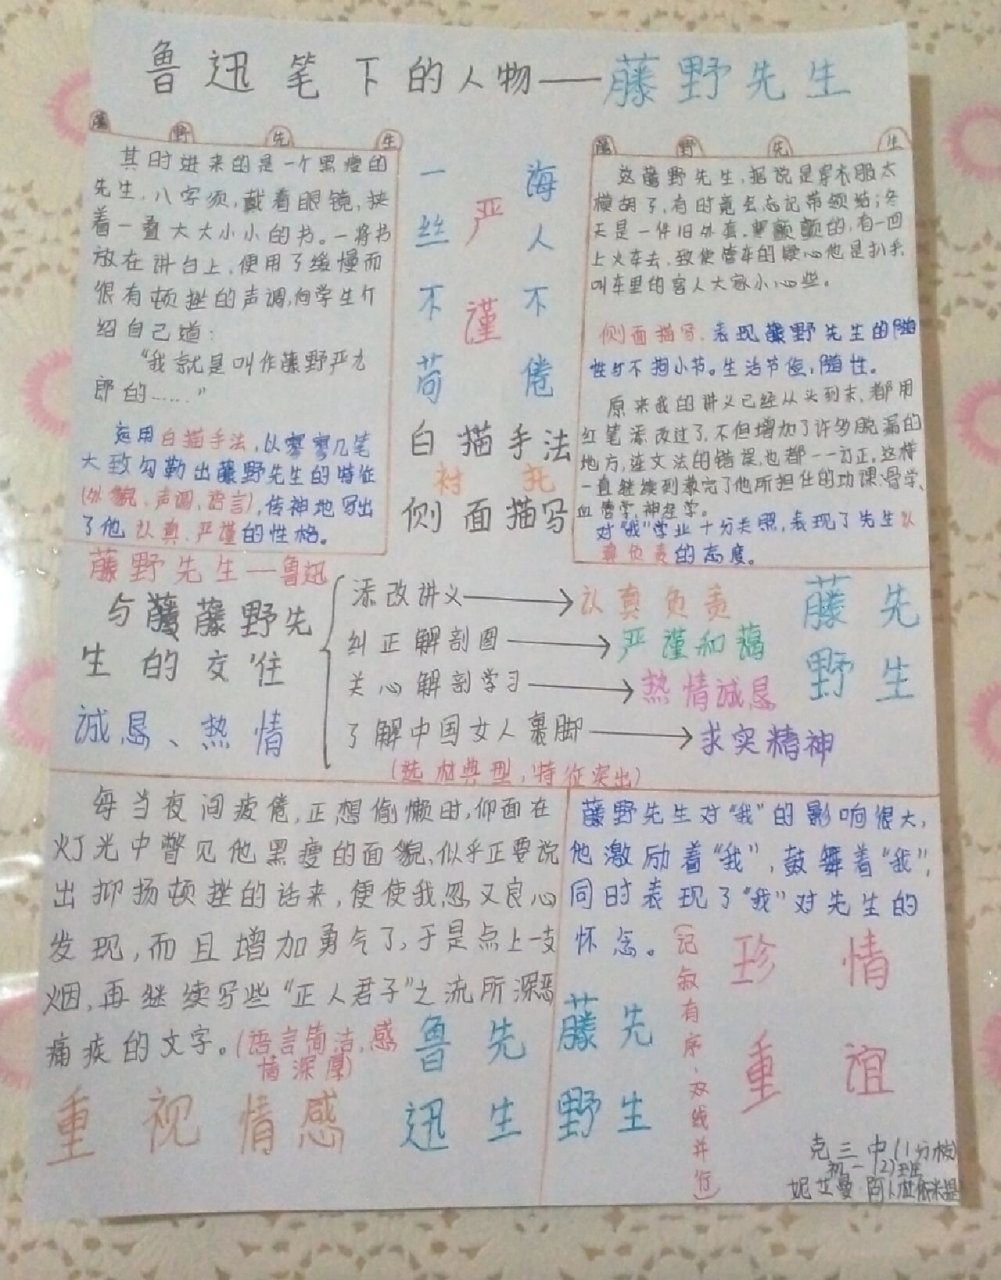 鲁迅笔下的人物——藤野先生
藤野先生
其时进来的是一个黑瘦的
先生,八字须,戴着眼镜,挟
着一叠大大小小的书。一将书
放在讲台上,便用了缓慢而
很有顿挫的声调,向学生介
绍自己道:
“我就是叫作藤野严九
郎的……”
运用白描手法,以寥寥几笔
大致勾勒出藤野先生的特征
(外貌、声调、语言),传神地写出
了他认真、严谨的性格。
一丝不苟
严谨
海人不倦
白描手法
衬托
侧面描写
藤野先生
这藤野先生,据说是穿衣服太
模胡了,有时竟会忘记带领结;冬
天是一件旧外套,寒颤颤的,有一回
上火车去,致使管车的疑心他是扒手,
叫车里的客人大家小心些。
侧面描写,表现藤野先生的随
性与不拘小节。生活节俭,随性。
原来我的讲义已经从头到末,都用
红笔添改过了,不但增加了许多脱漏的
地方,连文法的错误,也都一一订正。这样
一直继续到教完了他所担任的功课:骨学、
血管学、神经学。
对“我”学业十分关照,表现了先生认
真负责的态度。
藤野先生——鲁迅
与藤野先
生的交往
诚恳、热情
添改讲义→认真负责
纠正解剖图→严谨和蔼
关心解剖学习→热情诚恳
了解中国女人裹脚→求实精神
(选材典型,特征突出)
藤野先生
每当夜间疲倦,正想偷懒时,仰面在
灯光中瞥见他黑瘦的面貌,似乎正要说
出抑扬顿挫的话来,便使我忽又良心
发现,而且增加勇气了,于是点上一支
烟,再继续写些“正人君子”之流所深恶
痛疾的文字。(语言简洁,感
情深厚)
重视情感
鲁迅先生
藤野先生对“我”的影响很大,
他激励着“我”,鼓舞着“我”,
同时表现了“我”对先生的
怀念。
(记叙有序,双线并行)
藤野先生
珍重情谊
克三中(1分校)
初一(2)班
妮艾曼·阿